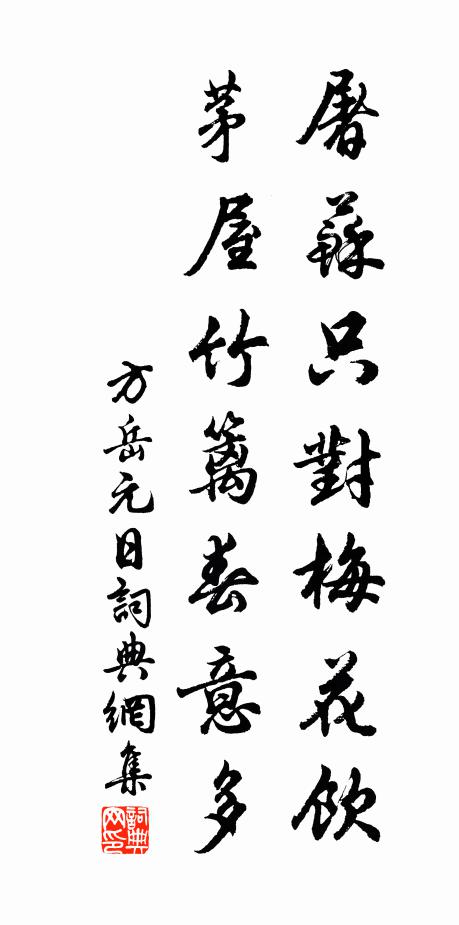 屠蘇只對梅花飲
茅屋竹籬春意多
方岳元日詞典網集
詞典網印